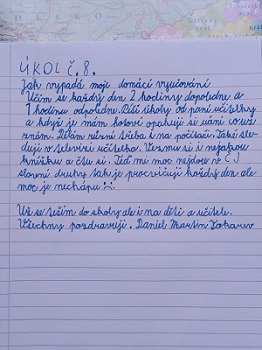 ÚKOL Č. 8.
Jak vypadá moje domácí vyučování
Učím se každý den 2 hodiny dopoledne a
1 hodinu odpoledne. Píši úkoly od paní učitelky
a když je mám hotové opakuji si učivo co už
znám. Dělám různí třeba i na počítači. Také sle-
duji v televizi učitelku. Vezmu si i nějakou
knížku a čtu si. Teď mi moc nejdou v
slovní druhy tak je procvičuji každý den ale
moc je nechápu
Už se těším do školy ale i na děti a učitele.
Všechny pozdravuji. Daniel Martin